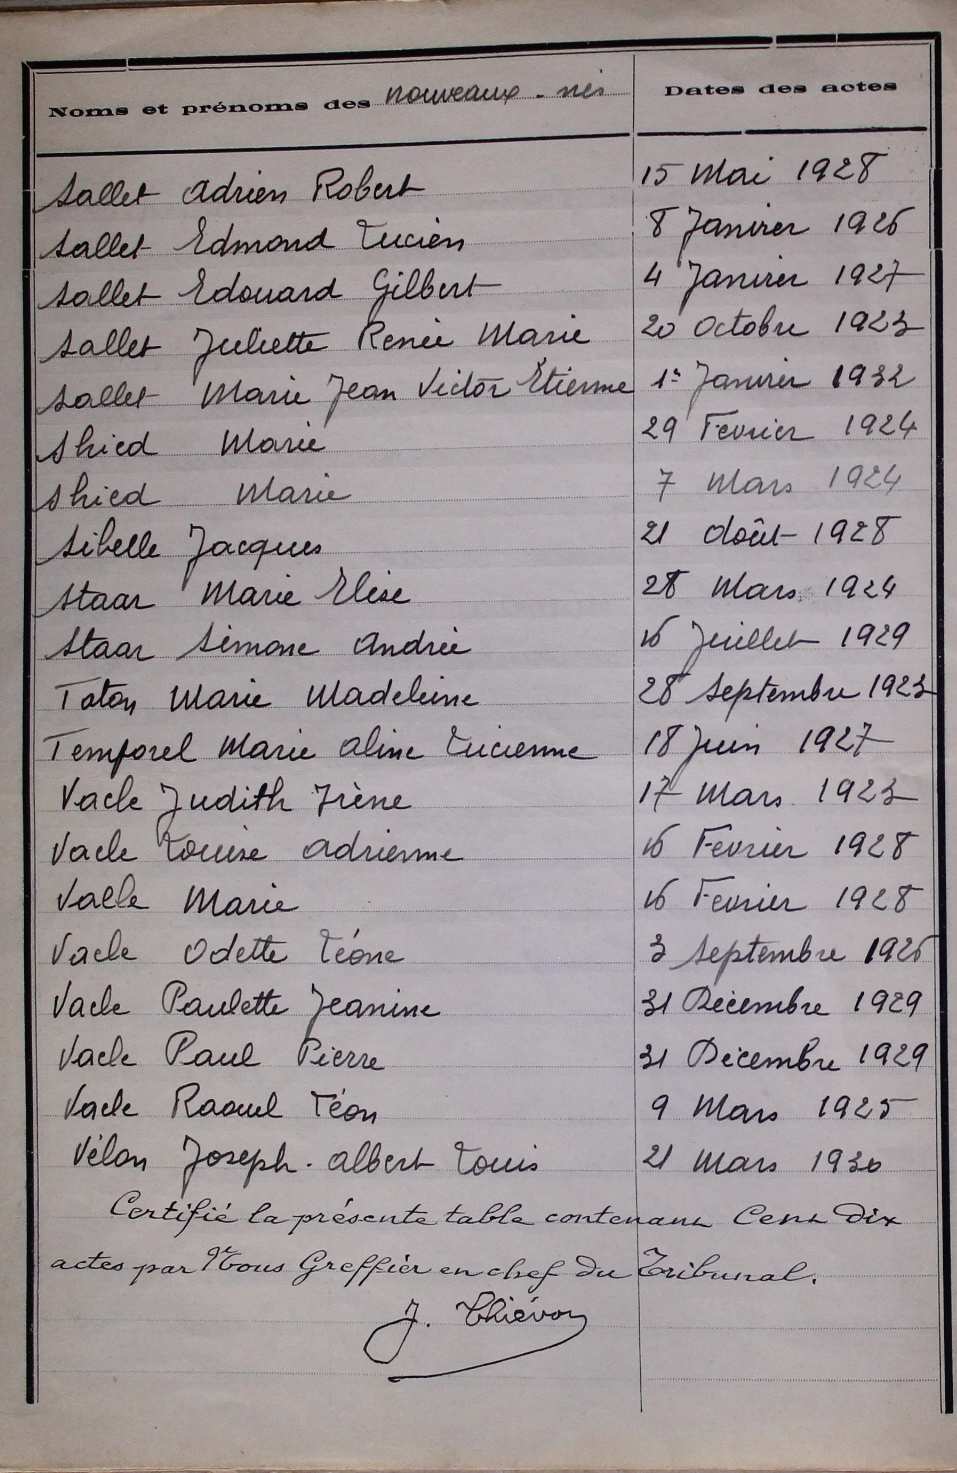 Noms et prénoms des nouveaux-nés Dates des actes
Sallet Adrien Robert 15 Mai 1928
Sallet Edmond Lucien 8 Janvier 1926
Sallet Edouard Gilbert 4 Janvier 1927
Sallet Juliette Renée Marie 20 Octobre 1923
Sallet Marie Jean Victor Etienne 1er Janvier 1932
Shied Marie 29 Fevrier 1924
Shied Marie 7 Mars 1924
Sibelle Jacques 21 Août 1928
Staar Marie Elise 28 Mars 1924
Staar Simone Andrée 16 Juillet 1929
Taton Marie Madeleine 28 Septembre 1923
Temporel Marie Aline Lucienne 18 Juin 1927
Vacle Judith Irène 17 Mars 1923
Vacle Louise Adrienne 16 Fevrier 1928
Vacle Marie 16 Fevrier 1928
Vacle Odette Léone 3 Septembre 1926
Vacle Paulette Jeanine 31 Décembre 1929
Vacle Paul Pierre 31 Décembre 1929
Vacle Raoul Léon 9 Mars 1925
Vélon Joseph. Albert Louis 21 Mars 1930
Certifié la présente table contenant Cent Dix
actes par Nous Greffier en chef du Tribunal.
J. Thiévon